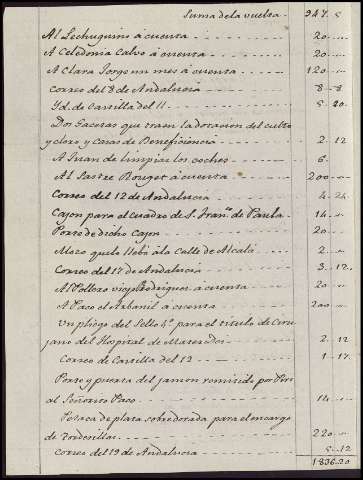 Suma de la vuelta - 947.. 5
Al Lechuguino á cuenta - 20
A Celedonia Calvo á cuenta - 20
A Clara Jorge un mes á cuenta - 120
Correo del 8 de Andalucia - 8 - 8
Yd. de Castilla del 11 - 5 . 20
Dos Gacetas que traen la dotacion del culto
y clero y Casas de Beneficencia - 2 . 12
A Juan de limpiar los coches - 6
Al Sastre Rouget á cuenta - 200
Correo del 12 de Andalucia - 4 . 24
Cajon para el cuadro de S. Franco. de Paula - 14
Porte de dicho Cajon - 20
Mozo que lo llebó á la Calle de Alcalá - 2
Correo del 17 de Andalucia - 3 . 12
Al Pollero Rodriguez á cuenta - 20
A Paco el Arbañil á cuenta - 200
Un pliego del Sello 4º para el titulo de Ciru
jano del Hospital de - 2 . 12
Correo de Castilla del 12 - 1 . 17
Porte y puerta del jamon remitido por
al Señorito Paco - 14
de plata sobredorada para el encargo
de Tordesillas - 220
Correo del 19 de Andalucia - 5 . 12
1836.20